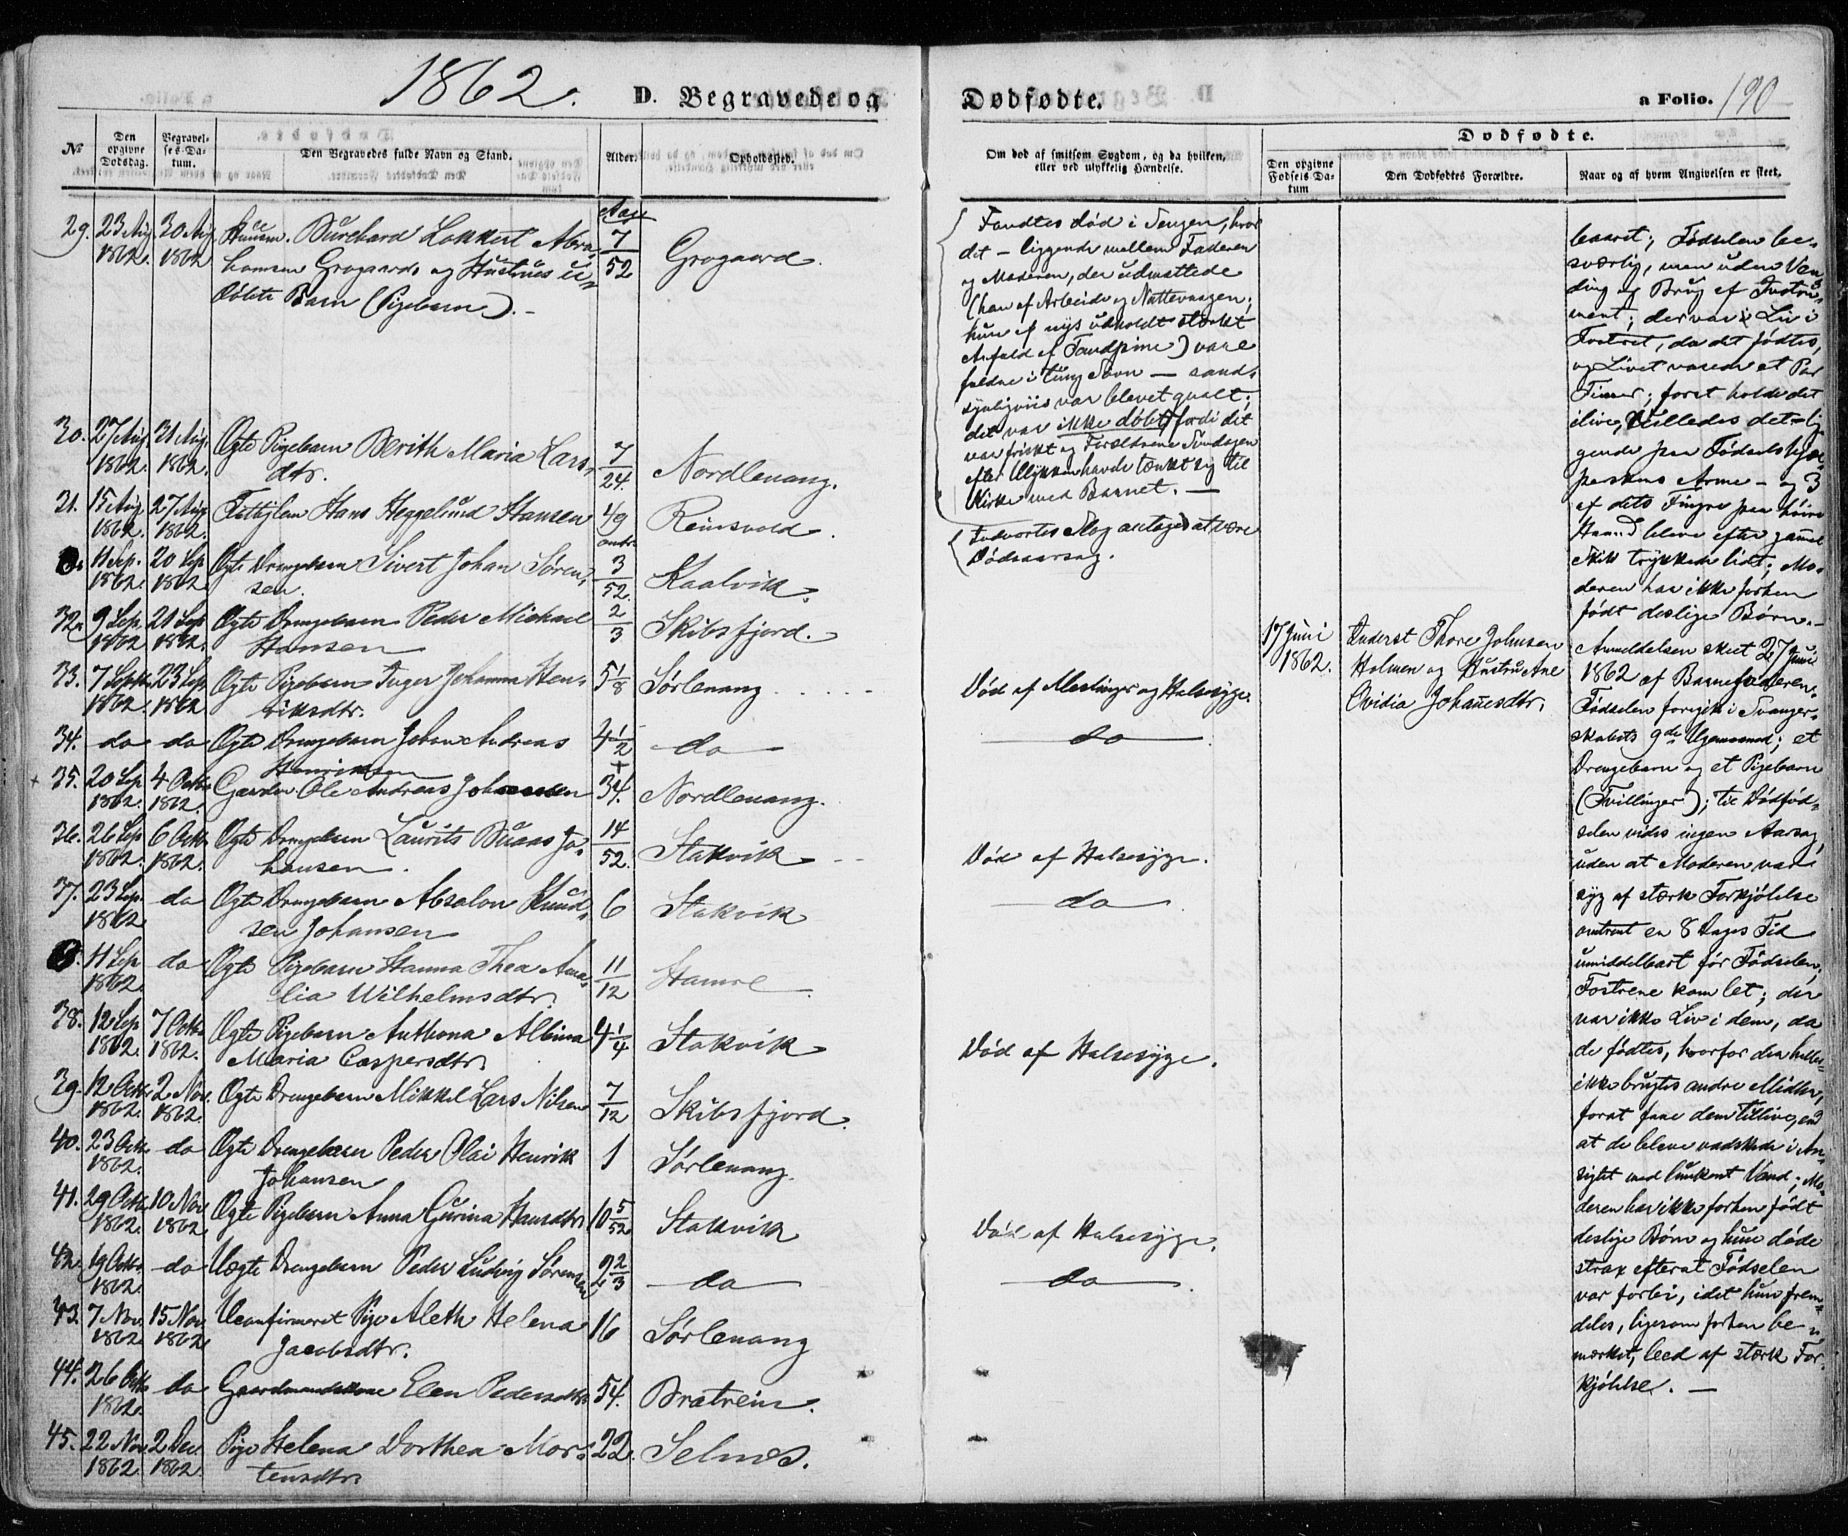 1862.
D. Begravede og
Dødfødte.
a Folio. 190
Dødfødte.
№
Den opgivne Dødsdag.
Begravel-ses-Da-tum.
Den Begravedes fulde Navn og Stand.
Alder.
Opholdssted.
Om død af smitsom Sygdom, og da hvilken,
eller ved ulykkelig Hændelse.
Den opgivne Fødsels Da-tum
Den Dødfødtes Forældre.
Naar og af hvem Angivelsen er skeet.
29. 23 Aug 1862. 30 Aug 1862 Huusm. Burchard Lokkert Abra-
hamsen Grøgaard og Hustrues u-
døbte Barn (Pigebarn). 7/52 Grøgaard.
30. 27 Aug 1862. 31 Aug 1862. Ægte Pigebarn Berith Maria Lars-
dtr. 7/24. Nordlenang.
31. 15 Aug 1862. 27 Aug 1862. Fattiglem Hans Heggelund Hansen 49 Reinsvold.
11 Sep. 1862 20 Sep 1862 Ægte Drengebarn Sivert Johan Søren-
sen. 3/52. Kaalvik.
32. 9 Sep 1862 21 Sep 1862. Ægte Drengebarn Peder Michael
Hansen 2/3 Skibsfjord.
33. 7 Sept 1862 23 Sep 1862 Ægte Pigebarn Inger Johanna Hen-
riksdtr. 5 1/8 Sørlenang
34. do do Ægte Drengebarn Johan Andreas
Henriksen 4 1/2 do
+ 35. 20 Sep 1862. 4 Octb 1862. Gaardm. Ole Andreas Johannesen 34. Nordlenang.
36. 26 Sep 1862. 6 Octb 1862. Ægte Drengebarn Laurits Buaas Jo-
hansen. 14/52. Stakvik
37. 23 Sep. 1862 do Ægte Drengebarn Absalon Knud-
sen Johansen 6 Stakvik
11 Sep 1862. do Ægte Pigebarn Hanna Thea Ama-
lia Wilhelmsdtr. 11/12 Hamre
38. 12 Sep 1862. 7 Octb 1862. Ægte Pigebarn Anthona Albina
Maria Caspersdtr. 4 1/4 Stakvik
39. 12 Octb 1862. 2 Nov. 1862. Ægte Drengebarn Mikkel Lars Nilsen 7/12 Skibsfjord.
40. 23 Octb. 1862. do Ægte Drengebarn Peder Olai Henrik
Johansen 1 Sørlenang.
41. 29 Octb 1862. 10 Nov. 1862 Ægte Pigebarn Anna Gurina Hansdtr. 10 5/52 Stakvik
42. 19 Octb. 1862. do Uægte Drengebarn Peder Ludvig Sørensen 2 2/3 do
43. 7 Nov. 1862 15 Nov. 1862 Uconfirmeret Pige Aleth Helena
Jacobsdtr. 16 Sørlenang
44. 26 Octb 1862. do Gaardmandskone Elen Pedersdtr. 54. Bratrein.
45. 22 Nov. 1862. 2 Dec. 1862. Pige Helena Dorthea Mor-
tensdtr. 22. Selnes.
Fandtes død i Sengen, hvor
det – liggende mellem Faderen
og Moderen, der udmattede
(han af Arbeide og Nattevaagen;
hun af nys udholdt stærkt
Anfald af Tandpine) vare
faldne i tung Søvn – sand-
synligviis var blevet qvalt;
det var ikke døbt, fordi det
var friskt og Forældrene Søndagen
efter Ulykken havde tænkt sig til
Kirke med Barnet. –
Indvortes Slag antages at være
Dødsaarsag.
Død af Meslinger og Halssyge.
do
Død af Halssyge.
do
Død af Halssyge.
Død af Halssyge.
do
17 Juni 1862.
Inderst Thore Johnsen
Holmen og Hustru Ane
Ovidia Johansdtr.
baaret; Fødselen be-
sværlig, men uden Ven-
ding og Brug af Instru-
ment; der var Liv i
Fostret, da det fødtes,
og Livet varede et Par
Timer; forat holde det
ilive, stilledes det lig-
gende paa Fødselshjæl-
perskens Arme – og 3
af dets Fingre paa høire
Haand bleve efter gammel
Skik trykkede lidt; Mo-
deren har ikke forhen
født deslige Børn. –
Anmeldelsen skeet 27 Juni
1862 af Barnefaderen.
Fødselen foregik i Svanger-
skabets 9de Ugemaaned; et
Drengebarn og et Pigebarn
(Tvillinger); til Dødfød-
selen vides ingen Aarsag,
uden at Moderen var
syg af stærk Forkjølelse
omtrent en 8 Dages Tid
umiddelbart før Fødselen;
Fostrene kom let; der
var ikke Liv i dem, da
de fødtes, hvorfor der heller
ikke brugtes andre Midler,
forat faae dem tillive, end
at de bleve vadskede i An-
sigtet med lunkent Vand; Mo-
deren har ikke forhen født
deslige Børn og hun døde
strax efterat Fødselen
var forbi, idet hun frem-
deles, ligesom forhen be-
mærket, leed af stærk For-
kjølelse. –